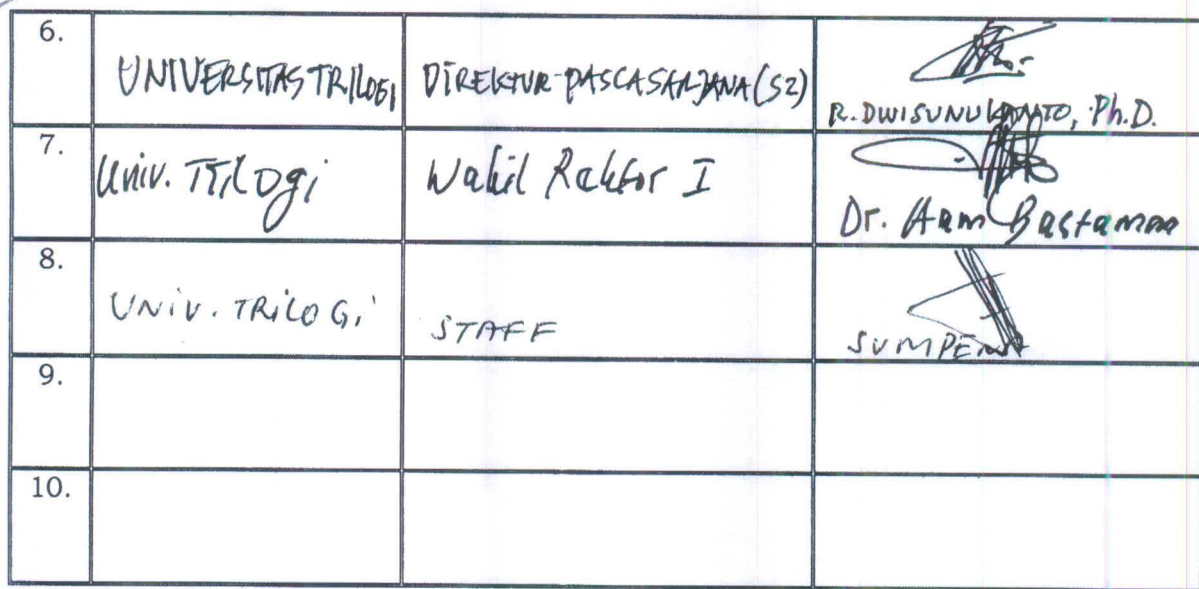 6.
UNIVERSITAS TRILOGI
DIREKTUR PASCASARJANA (S2)
R. DWISUNU KANTO, Ph.D.
7.
Univ. Trilogi
Wakil Rektor I
Dr. Aam Bastaman
8.
UNIV. TRILOGI
STAFF
9.
10.